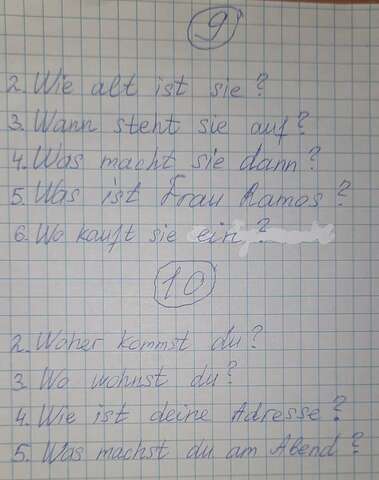 9
2. Wie alt ist sie?
3. Wann steht sie auf?
4. Was macht sie dann?
5. Was ist Frau Ramos?
6. Wo kauft sie ein?
10
2. Woher kommst du?
3. Wo wohnst du?
4. Wie ist deine Adresse?
5. Was machst du am Abend?